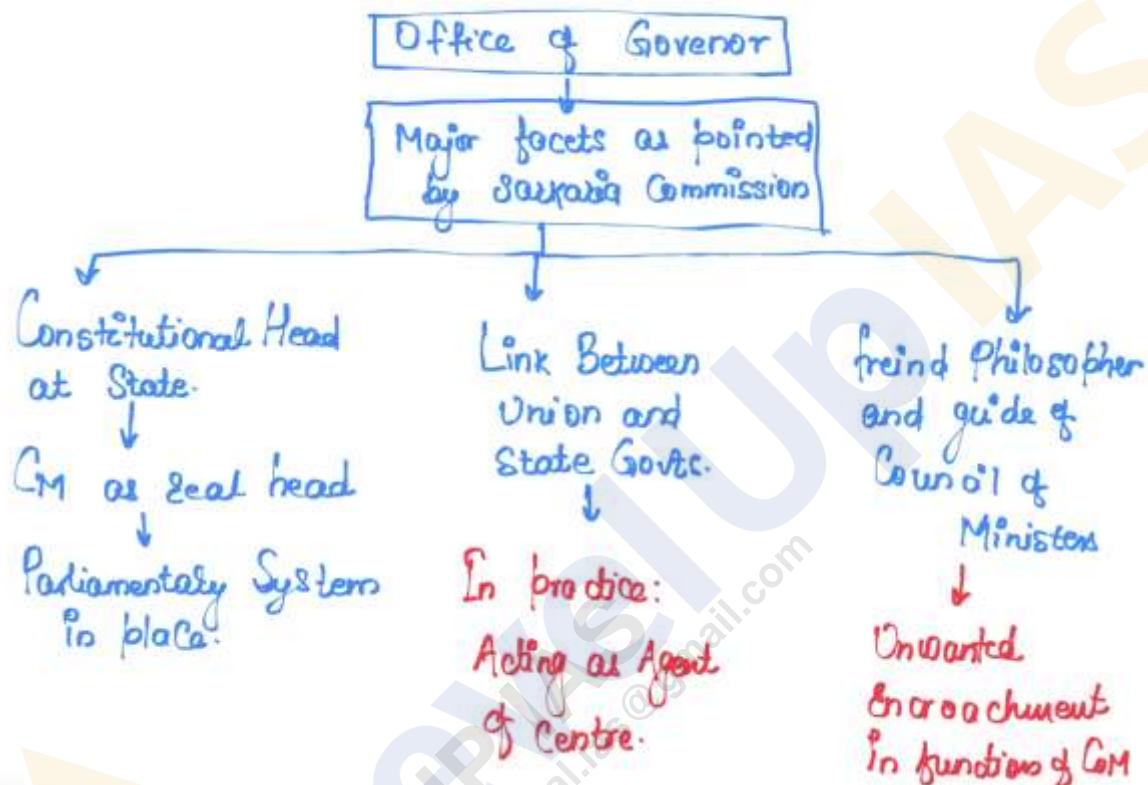 Office of Govenor
Major facets as pointed
by Sarkaria Commission
Constitutional Head
at State.
CM as real head
Parliamentary System
in place.
Link Between
Union and
State Govts.
In practice:
Acting as Agent
of Centre.
freind Philosopher
and guide of
Council of
Ministers
Unwanted
Encroachment
in functions of CoM
IAS
Up
@gmail.com